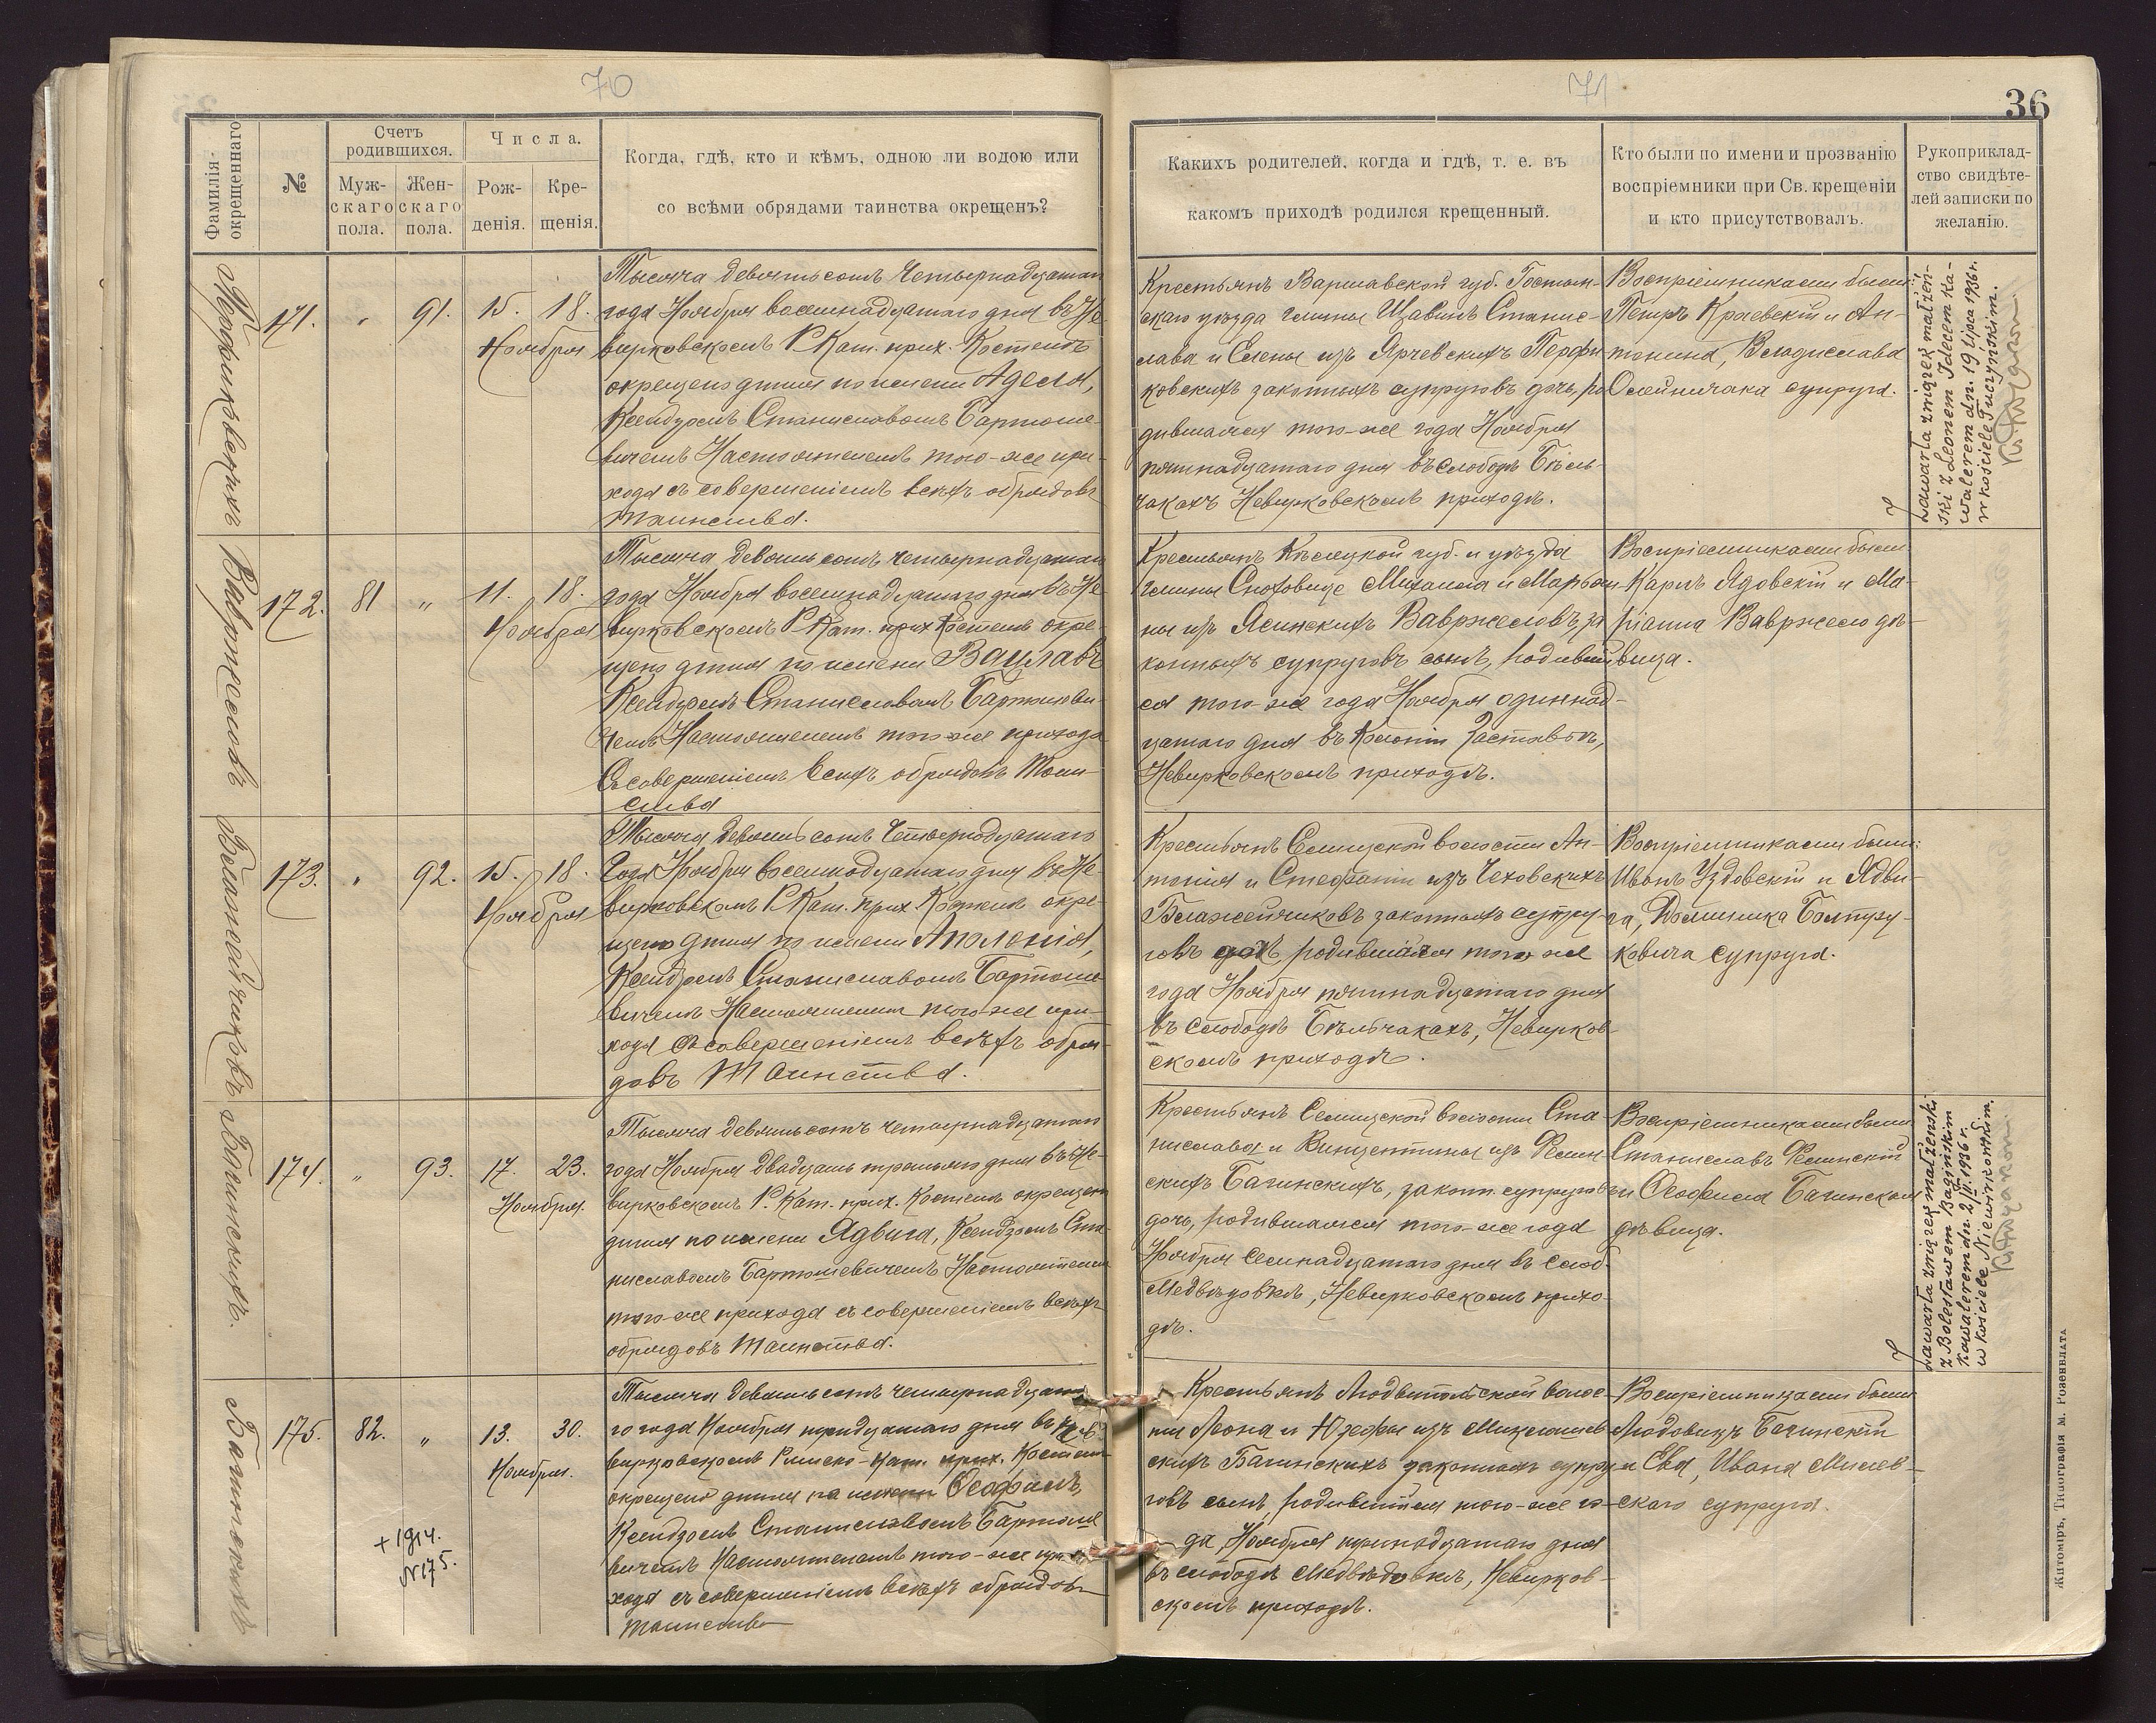 70
71
36
Фамилія
окрещеннаго
№
Счетъ
родившихся.
Муж-
скаго
пола.
Жен-
скаго
пола.
Числа.
Рож-
денія.
Кре-
щенія.
Когда, гдѣ, кто и кѣмъ, одною ли водою или
со всѣми обрядами таинства окрещенъ?
Какихъ родителей, когда и гдѣ, т. е. въ
какомъ приходѣ родился крещенный.
Кто были по имени и прозванію
воспріемники при Св. крещеніи
и кто присутствовалъ.
Рукоприклад-
ство свидѣте-
лей записки по
желанію.
171.
"
91.
15.
18.
Ноября
Тысяча девятьсотъ четырнадцатаго
года Ноября восемнадцатаго дня въ Не-
вирковскомъ Р. Кат. прих. Костелѣ
окрещено дитя по имени Аделя,
Ксендзомъ Станиславомъ Бартоше-
вичемъ Настоятелемъ того-же при-
хода съ совершеніемъ всѣхъ обрядовъ
таинства.
Крестьянъ Варшавской губ. Гостын-
скаго уѣзда гмины Щавинъ Станис-
лава и Елены изъ Ярчевскихъ Перфи
ковскихъ законныхъ супруговъ дочь, ро
дившаяся того-же года Ноября
пятнадцатаго дня въ слободѣ Бѣль-
чакахъ Невирковскомъ приходѣ.
Воспріемниками были:
Петръ Краевскій и Ан-
тонина, Владислава
Олейничака супруга.
Zawarła związek małżeń-
ski z Leonem Idecem ka-
walerem dn. 19 lipca 1936 r.
w kościele Tuczyńskim.
Вавржеловъ
172.
81
"
11.
18.
Ноября
Тысяча девятьсотъ четырнадцатаго
года Ноября восемнадцатаго дня въ Не-
вирковскомъ Р. Кат. прих Костелѣ окре-
щено дитя по имени Вацлавъ
Ксендзомъ Станиславомъ Бартошеви-
чемъ Настоятелемъ того-же прихода
Съ совершеніемъ всѣхъ обрядовъ Таин-
ства
Крестьянъ Кѣлецкой губ. и уѣзда
гмины Сноховице Михаила и Марьян-
ны изъ Ясинскихъ Вавржеловъ за
конныхъ супруговъ сынъ, родивший
ся того-же года Ноября одиннад-
цатаго дня въ Колоніи Заставье,
Невирковскомъ приходѣ.
Воспріемниками были
Карлъ Ядовскій и Ма-
ріанна Вавржело дѣ-
вица.
Блажейчиковъ
173.
"
92.
15.
18.
Ноября
Тысяча девятьсотъ четырнадцатаго
года Ноября восемнадцатаго дня въ Не-
вирковскомъ Р. Кат. прих Костелѣ окре-
щено дитя по имени Аполенія,
Ксендзомъ Станиславомъ Бартоше
вичемъ Настоятелемъ того-же при-
хода съ совершеніемъ всѣхъ обря-
довъ Таинства.
Крестьянъ Селищской волости Ан-
тонія и Стефаніи изъ Чеховскихъ
Блажейчиковъ законныхъ супру-
говъ дочь, родившаяся того же
года Ноября пятнадцатаго дня
въ слободѣ Бѣльчакахъ, Невирков-
скомъ приходѣ.
Воспріемниками были:
Иванъ Уздовскій и Ядви-
га, Доминика Болтру-
ковича супруга.
Багинскихъ.
174.
"
93.
17.
23.
Ноября.
Тысяча девятьсотъ четырнадцатаго
года Ноября двадцать третьяго дня въ Не-
вирковскомъ Р. Кат. прих. Костелѣ окрещено
дитя по имени Ядвига, Ксендзомъ Ста-
ниславомъ Бартошевичемъ Настоятелемъ
того-же прихода съ совершеніемъ всѣхъ
обрядовъ Таинства.
Крестьянъ Селищской волости Ста-
нислава и Винцентины изъ Фелин-
скихъ Багинскихъ, законн. супруговъ
дочь, родившаяся того-же года
Ноября семнадцатаго дня въ слоб.
Медвѣдовкѣ, Невирковскомъ прихо-
дѣ.
Воспріемниками были
Станиславъ Фелинскій
и Ѳеофиля Багинская
дѣвица.
Zawarła związek małżeński
z Bolesławem Bagińskim
kawalerem dn. 2/II. 1936 r.
w kościele Niewirkowskim.
Багинскихъ
175.
82.
"
13.
30.
Ноября.
+ 1914.
N 175.
Тысяча девятьсотъ четырнадцата-
го года Ноября тридцатаго дня въ Не-
вирковскомъ Римско-Кат. прих. Костелѣ
окрещено дитя по имени Ѳеофилъ,
Ксендзомъ Станиславомъ Бартоше
вичемъ Настоятелемъ того-же при-
хода съ совершеніемъ всѣхъ обрядовъ
таинства
Крестьянъ Людвипольской волос-
ти Леона и Юзефы изъ
скихъ Багинскихъ законныхъ супру
говъ сынъ, родившійся того-же го-
да, Ноября тринадцатаго дня
въ слободѣ Медвѣдовкѣ, Невирков-
скомъ приходѣ.
Воспріемниками были
Людовикъ Багинскій
и Ева, Ивана
скаго супруга.
Житоміръ, Типографія М. Розенблата